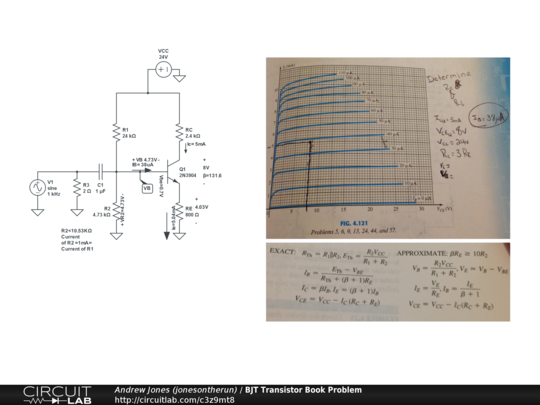 VCC
24V
R1
24 kΩ
RC
2.4 kΩ
Ic= 5mA
+ VB 4.73V -
IB= 38uA
Q1
2N3904
+
8V
β=131.6
-
V1
sine
1 kHz
R3
2 Ω
C1
1 µF
VB
Vbe=0.7V
R2
4.73 kΩ
+ VR2=4.73V -
RE
800 Ω
+
4.03V
-
R2=10.53KΩ
Current
of R2 =1mA=
Current of R1
Determine
RC
RE
ICQ = 5mA
IB = 38µA
VCEQ = 8V
VCC = 24V
RC = 3RE
FIG. 4.131
Problems 5, 6, 9, 13, 24, 44, and 57.
EXACT: RTh = R1||R2, ETh = R2VCC / R1 + R2
IB = ETh − VBE / RTh + (β + 1)RE
IC = βIB, IE = (β + 1)IB
VCE = VCC − IC(RC + RE)
APPROXIMATE: βRE ≥ 10R2
VB = R2VCC / R1 + R2, VE = VB − VBE
IE = VE / RE, IB = IE / β + 1
VCE = VCC − IC(RC + RE)
CIRCUIT LAB
Andrew Jones (jonesontherun) / BJT Transistor Book Problem
http://circuitlab.com/c3z9mt8